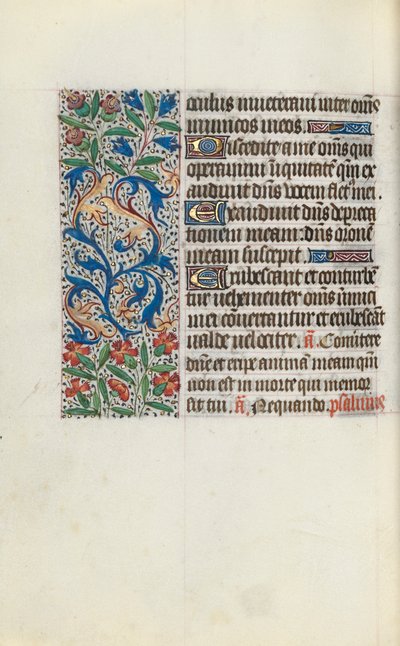 oculus inveteravi inter om̄s
inimicos meos.
Discedite a me om̄s qui
operamini īiquitatē qm̄ ex
audivit dn̄s vocem flet⁹ mei.
Exaudivit dn̄s depreca
tionem meam: dn̄s oronē
meam suscepit.
Erubescant et conturbē
tur vehementer om̄s inimici
mei convertantur et erubescāt
valde velociter. a͞. Convertere
dn̄e et eripe animā meam qm̄
non est in morte qui memor
sit tui. a͞. Nequando. psalmus